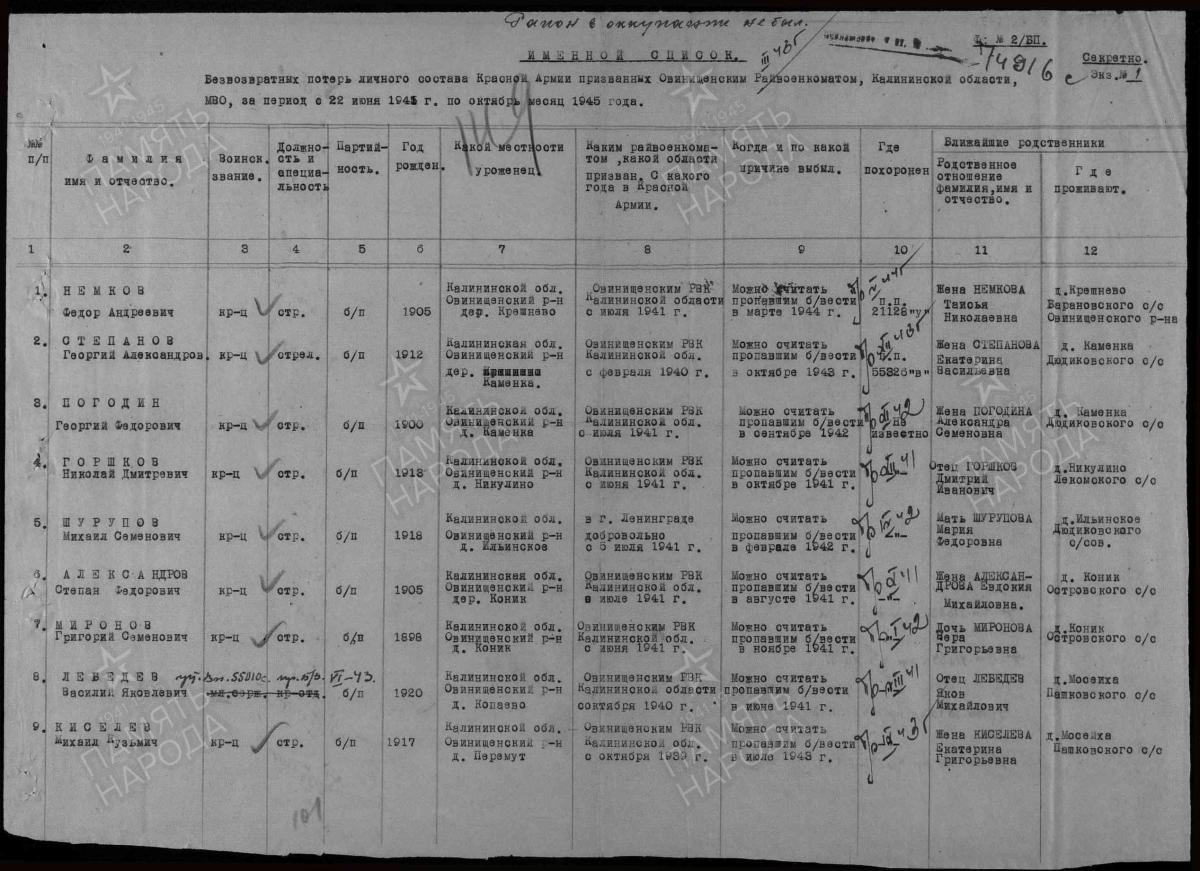 Район в оккупации не был.
Ф. № 2/БП.
ИМЕННОЙ СПИСОК.
III 43г
74916с
Секретно.
Экз.№ 1
Безвозвратных потерь личного состава Красной Армии призванных Овинищенским Райвоенкоматом, Калининской области,
МВО, за период с 22 июня 1941 г. по октябрь месяц 1945 года.
№№ п/п
Фамилия имя и отчество.
Воинск. звание.
Должно-сть и специа-льность
Партий-ность.
Год рожден.
Какой местности уроженец.
Каким райвоенкома-том ,какой области призван. С какого года в Красной Армии.
Когда и по какой причине выбыл.
Где похоронен
Ближайшие родственники
Родственное отношение фамилия,имя и отчество.
Где проживают.
1 2 3 4 5 6 7 8 9 10 11 12
1. НЕМКОВ Калининской обл. Овинищенским РВК Можно считать Жена НЕМКОВА д.Крешнево
Овинищенский р-н Калининской области пропавшим б/вести п.п. Таисья Барановского с/с
Федор Андреевич кр-ц стр. б/п 1905 дер. Крешнево с июля 1941 г. в марте 1944 г. 21128"у" Николаевна Овинищенского р-на
2. СТЕПАНОВ Калининская обл. Овинищенским РВК Можно считать Жена СТЕПАНОВА д. Каменка
Георгий Александров. кр-ц стрел. б/п 1912 Овинищенский р-н Калининской обл. пропавшим б/вести п.п. Екатерина Дюдиковского с/с
дер. Каменка. с февраля 1940 г. в октябре 1943 г. 55326"в" Васильевна
3. ПОГОДИН Калининской обл. Овинищенским РВК Можно считать Жена ПОГОДИНА д. Каменка
Георгий Федорович кр-ц стр. б/п 1900 Овинищенский р-н Калининской обл. пропавшим б/вести не Александра Дюдиковского с/с
д. Каменка с июля 1941 г. в сентябре 1942 известно Семеновна
4. ГОРШКОВ Калининской обл. Овинищенским РВК Можно считать Отец ГОРШКОВ д.Никулино
Николай Дмитревич кр-ц стр. б/п 1918 Овинищенский р-н Калининской обл. пропавшим б/вести Дмитрий Лекомского с/с
д. Никулино с июня 1941 г. в октябре 1941 г. Иванович
5. ШУРУПОВ Калининской обл. в г. Ленинграде Можно считать Мать ШУРУПОВА д.Ильинское
Михаил Семенович кр-ц стр. б/п 1918 Овинищенский р-н добровольно пропавшим б/вести Мария Дюдиковского
д. Ильинское с 5 июля 1941 г. в феврале 1942 г. Федоровна с/сов.
6. АЛЕКСАНДРОВ Калининская обл. Овинищенским РВК Можно считать Жена АЛЕКСАН- д. Коник
Степан Федорович кр-ц стр. б/п 1905 Овинищенский р-н Калининской обл. пропавшим б/вести ДРОВА Евдокия Островского с/с
дер. Коник в июле 1941 г. в августе 1941 г. Михайловна.
7. МИРОНОВ Калининской обл. Овинищенским РВК Можно считать Дочь МИРОНОВА д.Коник
Григорий Семенович кр-ц стр. б/п 1898 Овинищенский р-н Калининской обл. пропавшим б/вести Вера Островского с/с
д. Коник с июля 1941 г. в ноябре 1941 г. Григорьевна
8. ЛЕБЕДЕВ VI-43. Калининской обл. Овинищенским РВК Можно считать Отец ЛЕБЕДЕВ д.Мосеиха
Василий Яковлевич мл.серж. кр-отд. б/п 1920 Овинищенский р-н Калининской области пропавшим б/вести Яков Пашковского с/с
д. Копаево соктября 1940 г. в июне 1941 г. Михайлович
9. КИСЕЛЕВ Калининской обл. Овинищенским РВК Можно считать Жена КИСЕЛЕВА д.Мосейха
Михаил Кузьмич кр-ц стр. б/п 1917 Овинищенский р-н Калининской обл. пропавшим б/вести Екатерина Пашковского с/с
д. Перемут с октября 1939 г. в июле 1943 г. Григорьевна
101
ПАМЯТЬ НАРОДА
1941-1945